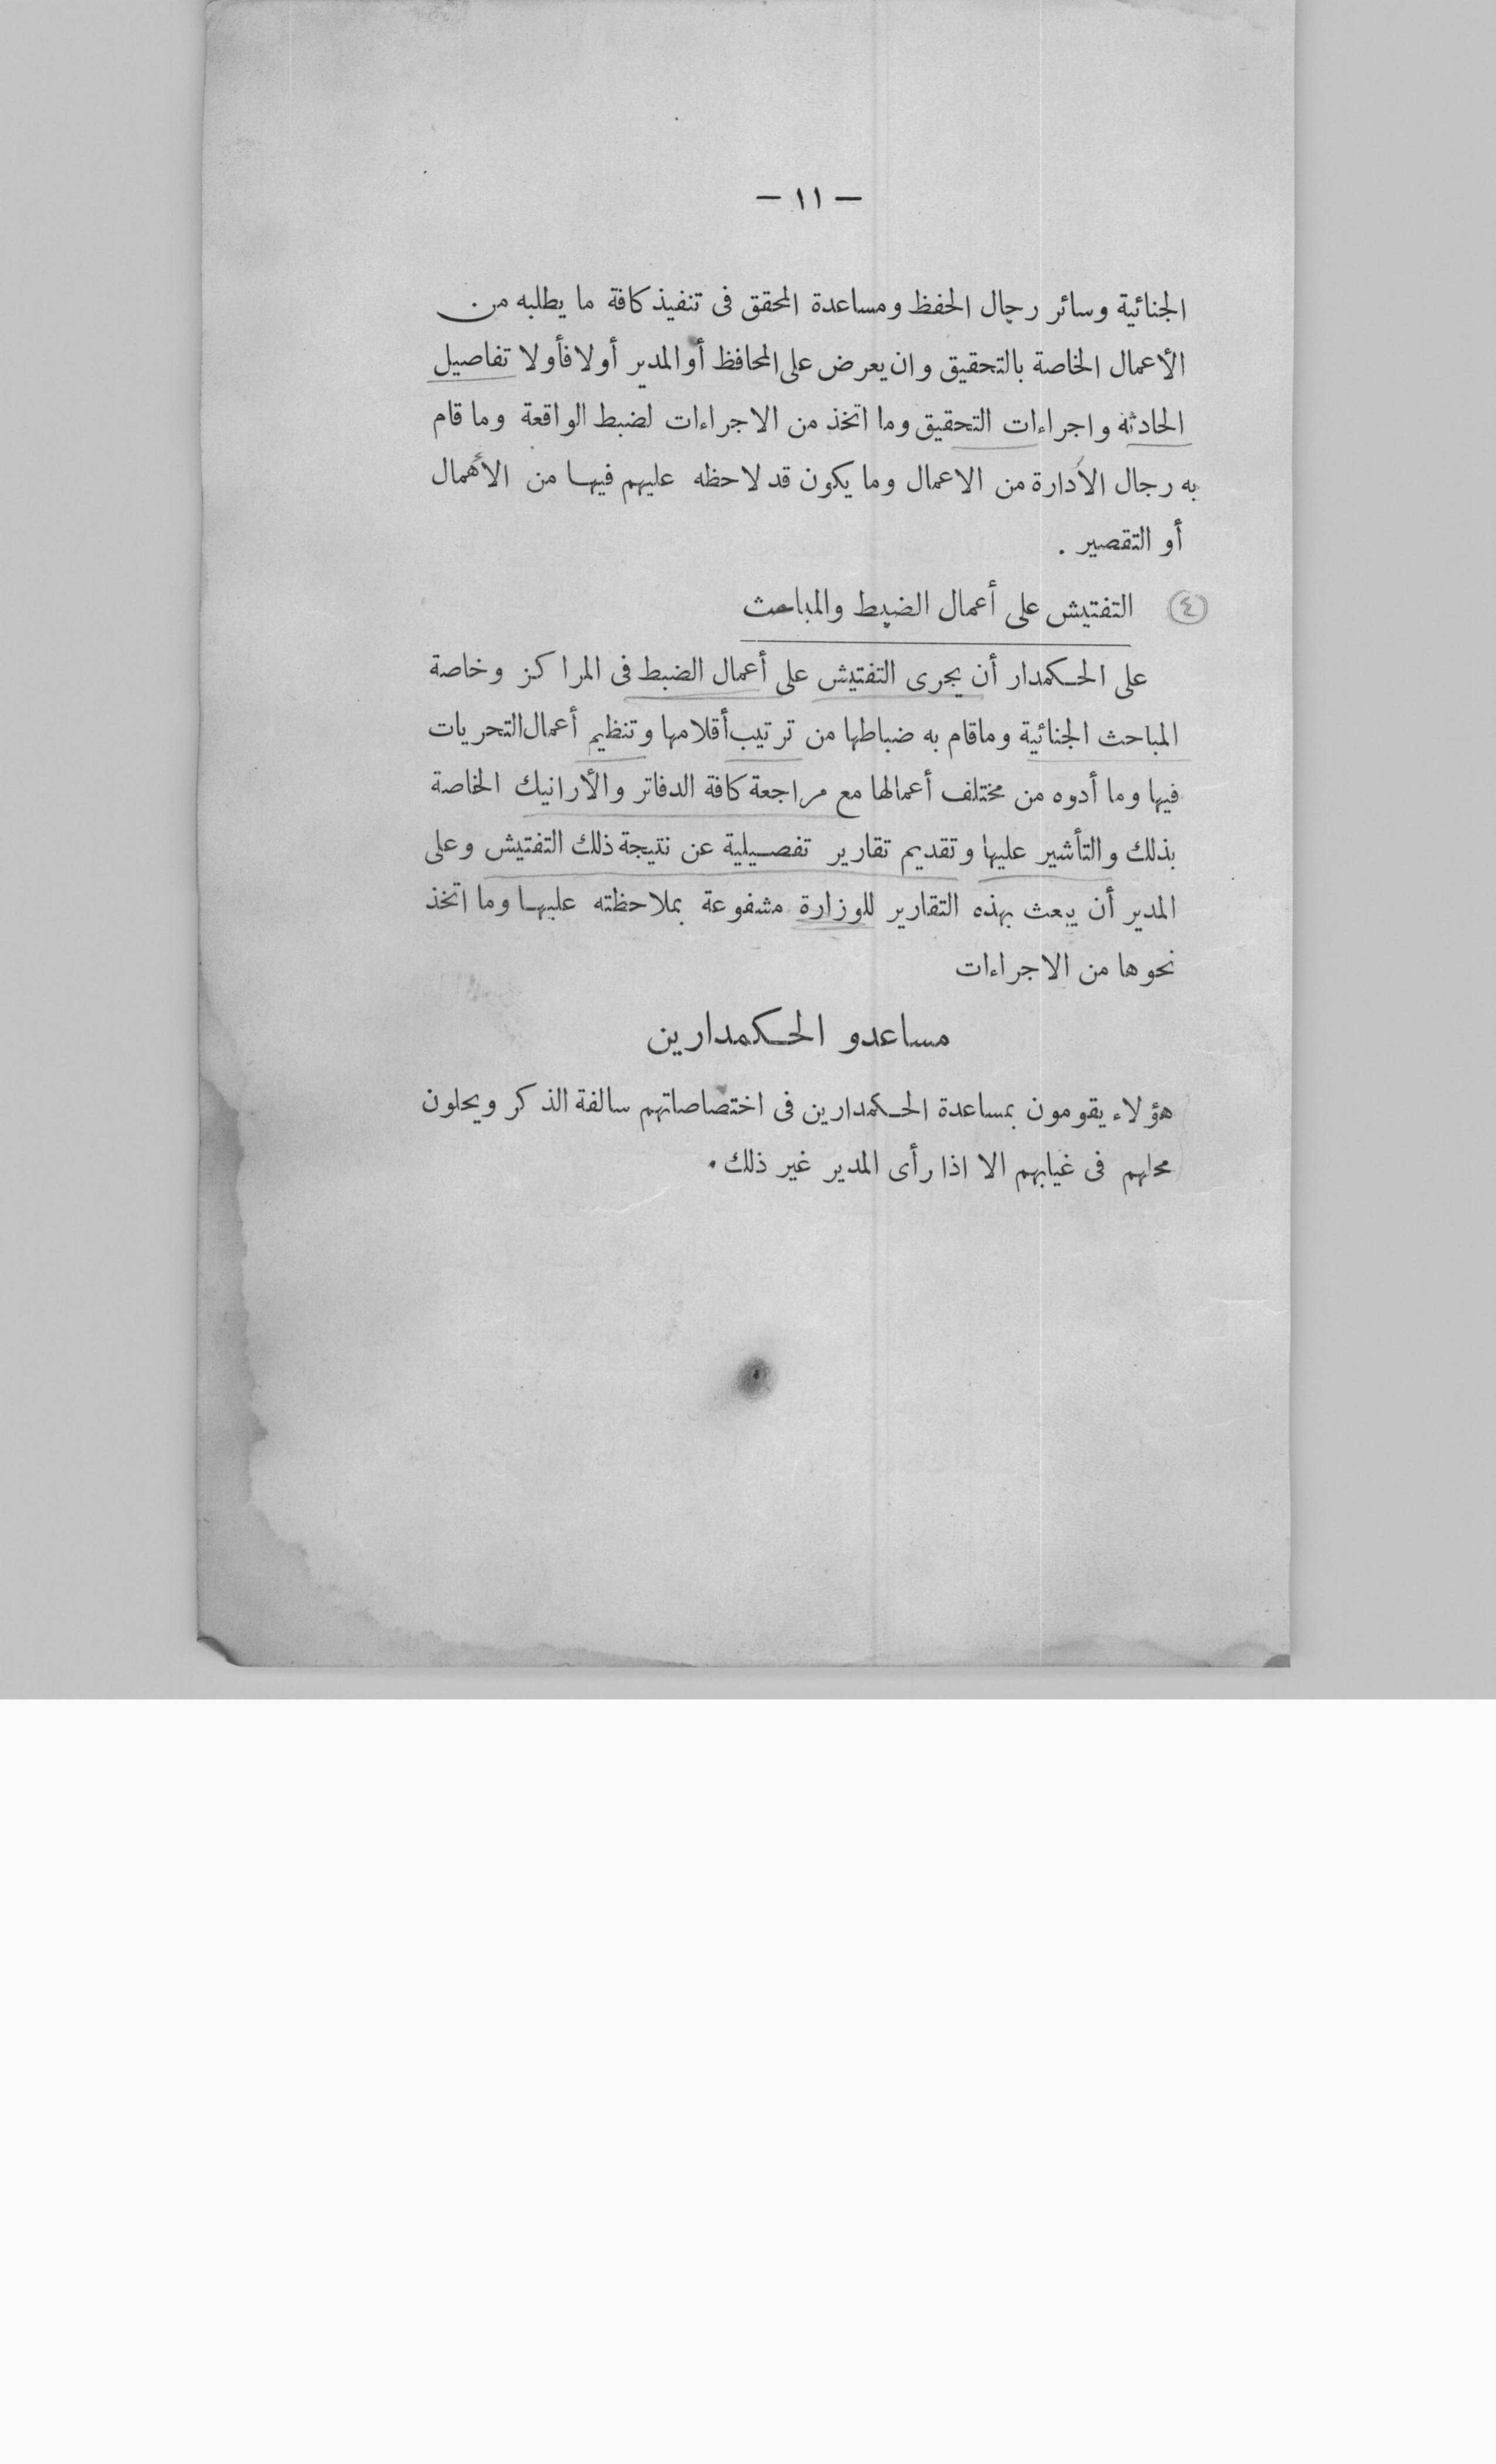 — ١١ —
الجنائية وسائر رجال الحفظ ومساعدة المحقق فى تنفيذ كافة ما يطلبه من
الأعمال الخاصة بالتحقيق وان يعرض على المحافظ أو المدير أولا فأولا تفاصيل
الحادثة واجراءات التحقيق وما اتخذ من الاجراءات لضبط الواقعة وما قام
به رجال الأدارة من الاعمال وما يكون قد لاحظه عليهم فيها من الأهمال
أو التقصير .
(٤) التفتيش على أعمال الضبط والمباحث
على الحكمدار أن يجرى التفتيش على أعمال الضبط فى المراكز وخاصة
المباحث الجنائية وماقام به ضباطها من ترتيب أقلامها وتنظيم أعمال التحريات
فيها وما أدوه من مختلف أعمالها مع مراجعة كافة الدفاتر والأرانيك الخاصة
بذلك والتأشير عليها وتقديم تقارير تفصيلية عن نتيجة ذلك التفتيش وعلى
المدير أن يبعث بهذه التقارير للوزارة مشفوعة بملاحظته عليها وما اتخذ
نحوها من الاجراءات
مساعدو الحكمدارين
هؤلاء يقومون بمساعدة الحكمدارين فى اختصاصاتهم سالفة الذكر ويحلون
محلهم فى غيابهم الا اذا رأى المدير غير ذلك .